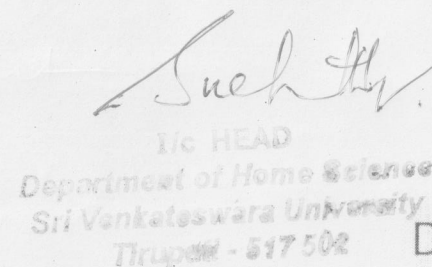 I/c HEAD
Department of Home Science
Sri Venkateswara University
Tirupati - 517 502
D